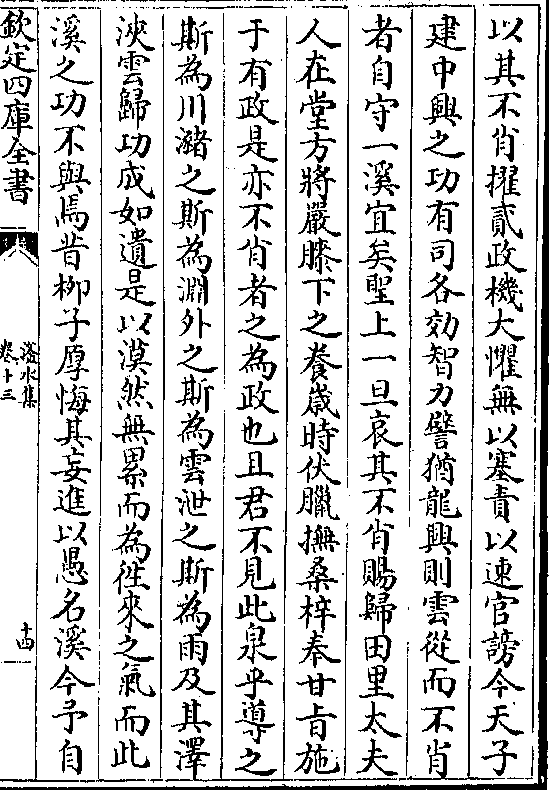 以其不肖擢貳政機大懼無以塞責以速官謗今天子
建中興之功有司各效智力譬猶龍興則雲從而不肖
者自守一溪宜矣聖上一旦哀其不肖賜歸田里太夫
人在堂方將嚴膝下之養歲時伏臘撫桑梓奉甘旨施
于有政是亦不肖者之為政也且君不見此泉乎導之
斯為川瀦之斯為淵外之斯為雲泄之斯為雨及其澤
浹雲歸功成如遺是以漠然無累而為徃來之氣而此
溪之功不與焉昔柳子厚悔其妄進以愚名溪今予自
欽定四庫全書
滏水集
卷十三
十四